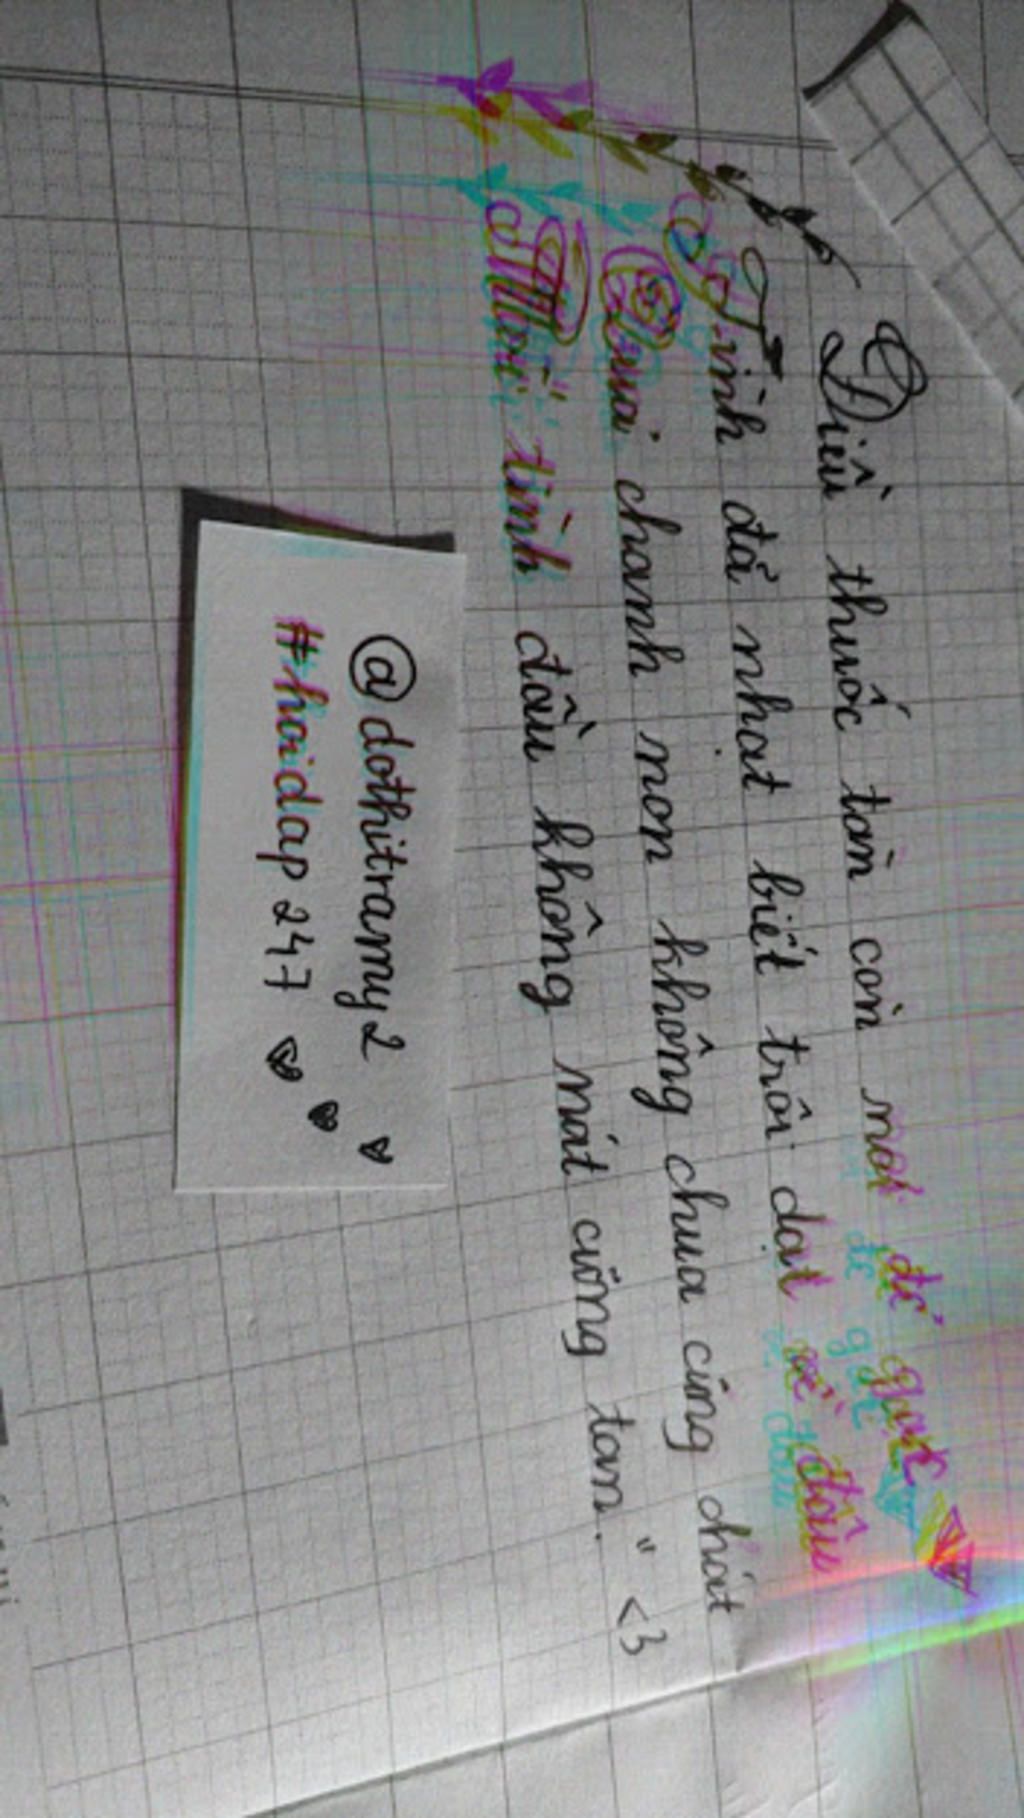 Điếu thuốc tàn còn mơi để gạt
Tình đã nhạt biết trôi dạt về đâu
Quả chanh non không chua cũng chát
Mối tình đầu không mát cũng tan." <3
@dothitramy2
#hoidap247